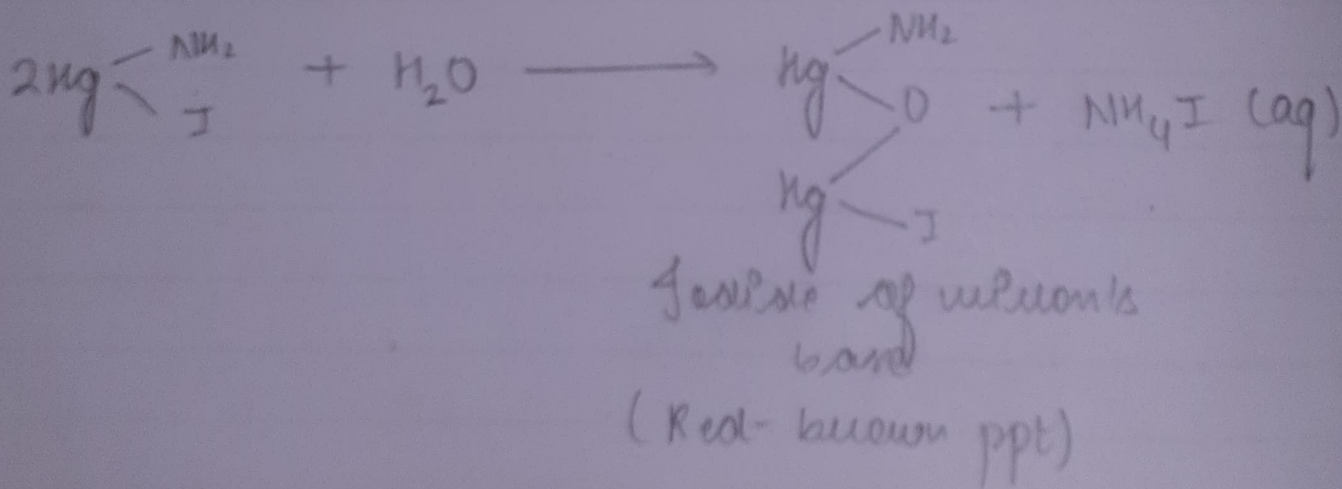 2Hg NH₂ I + H₂O ⟶ Hg NH₂ O Hg I + NH₄I (aq)
Iodide of millon's
base
(Red-brown ppt)